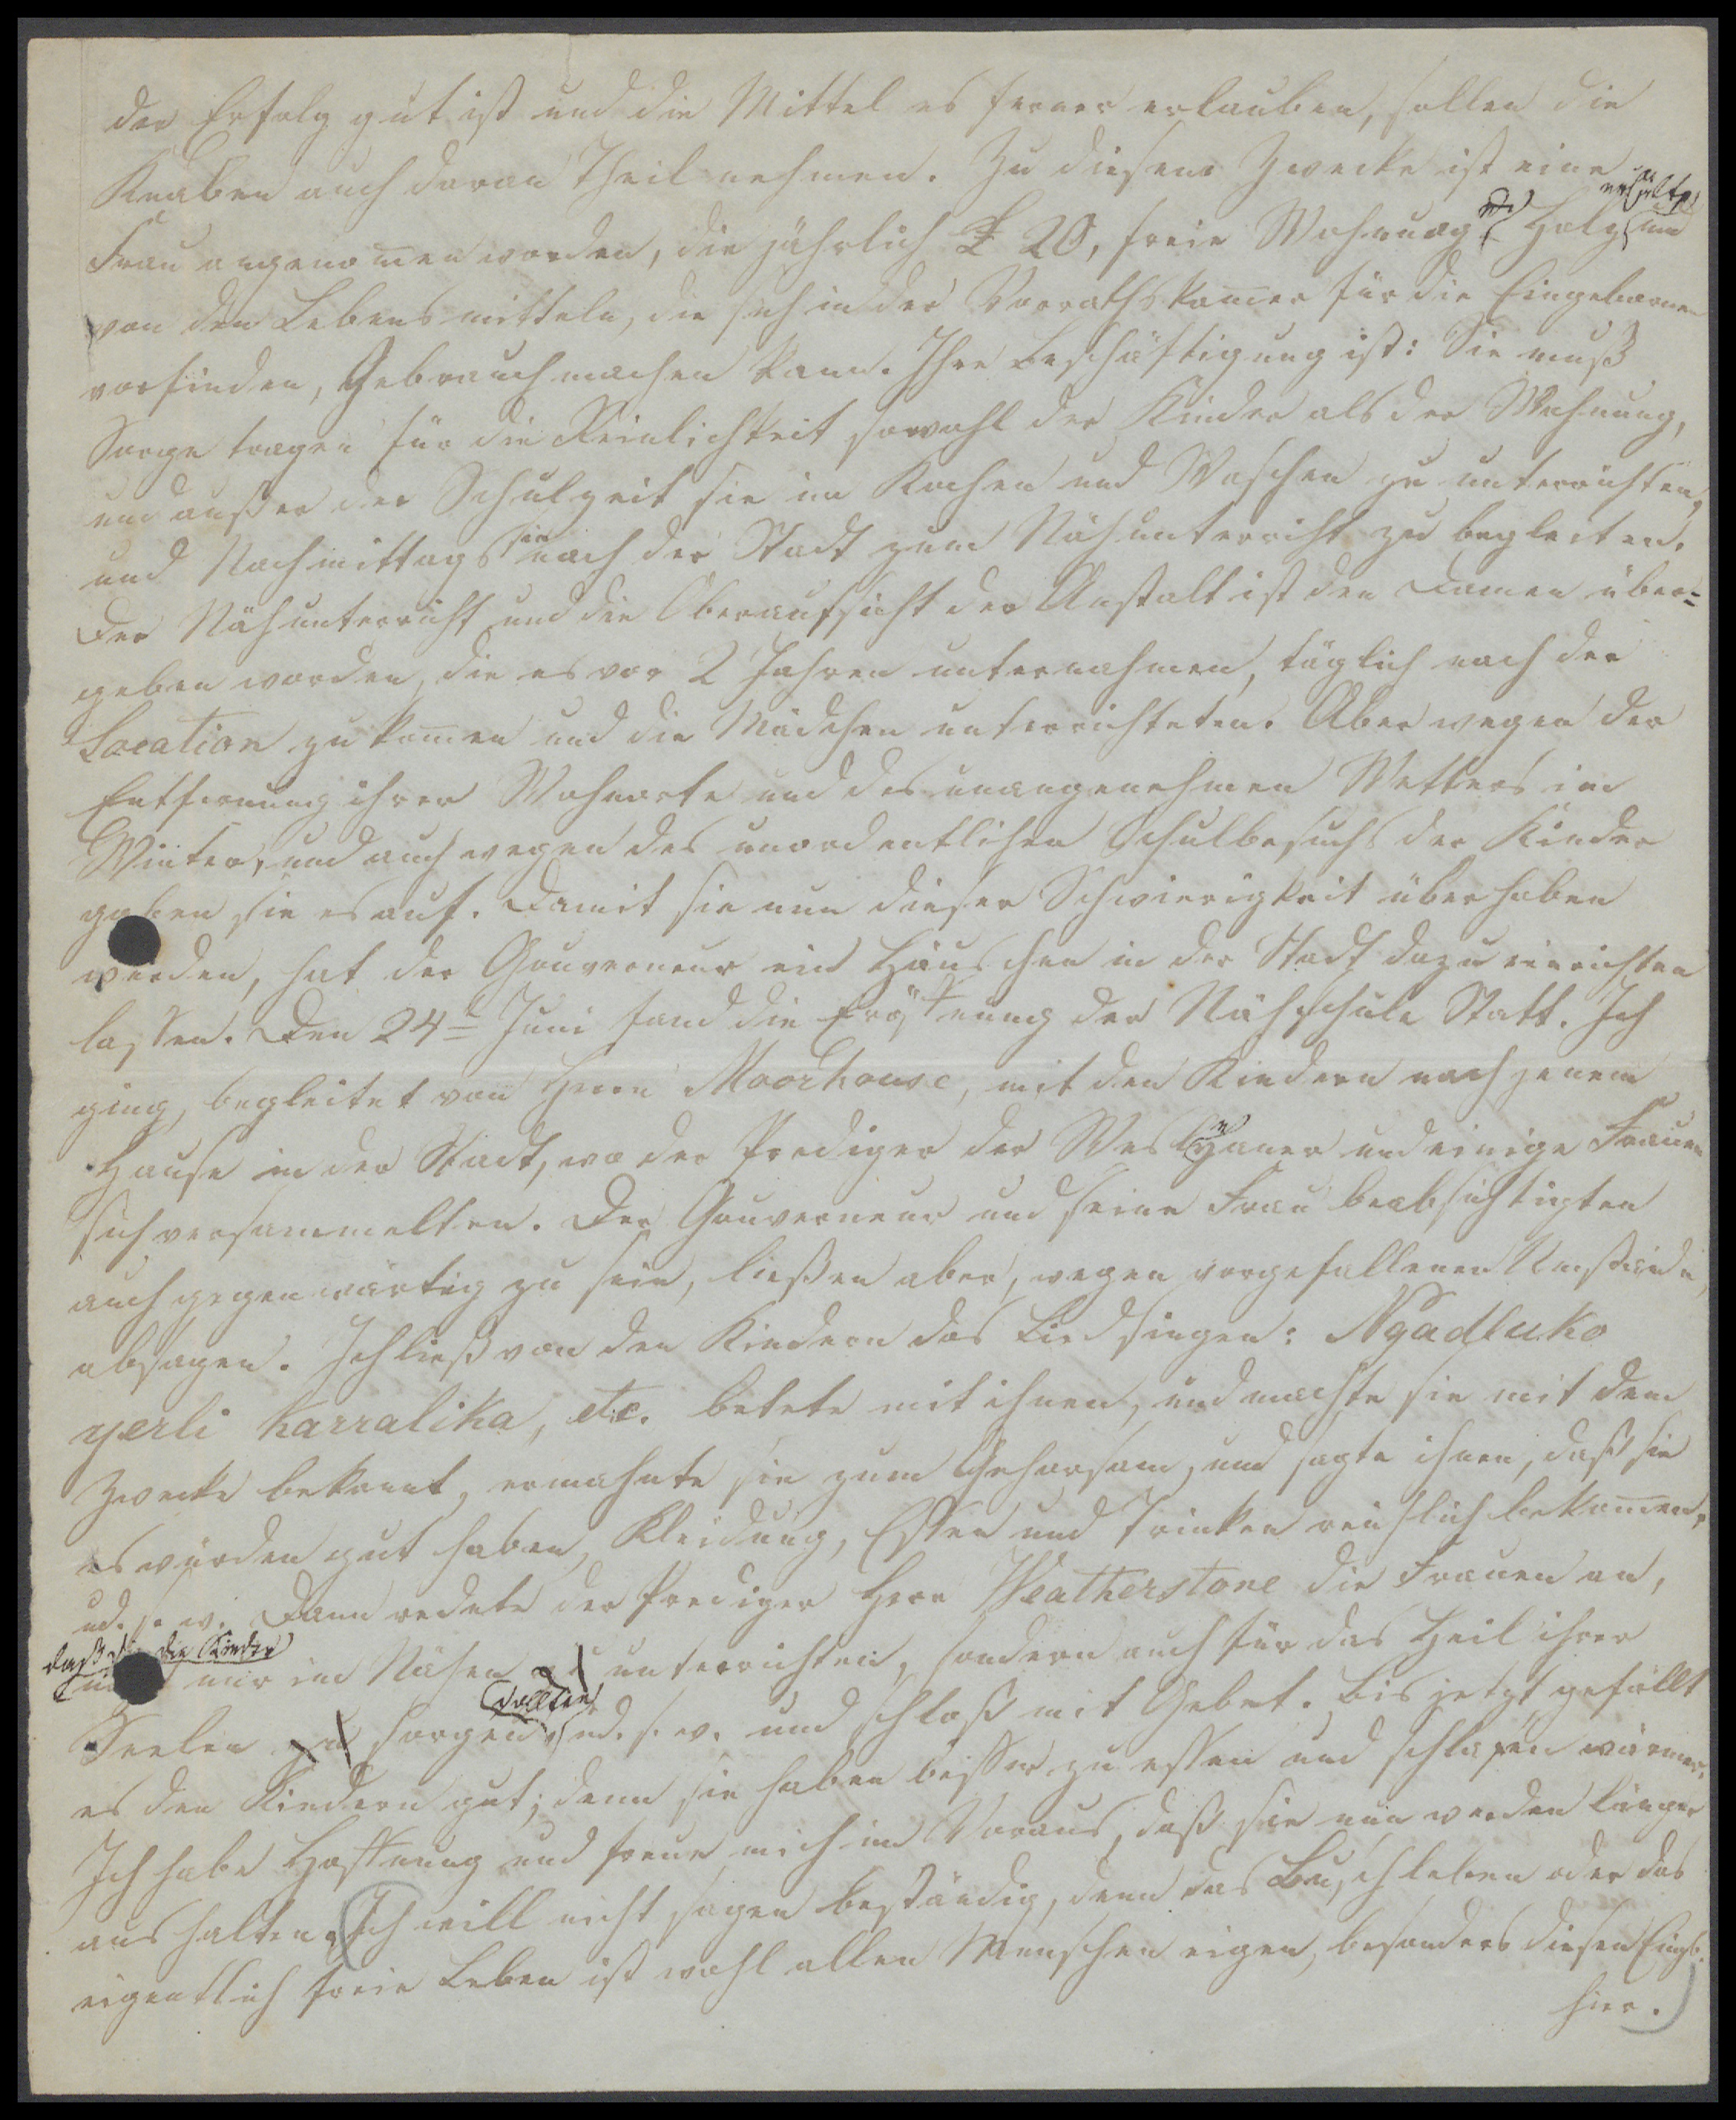 der Erfolg gut ist und die Mittel es ferner erlauben, sollen die
Knaben auch daran Theil nehmen. Zu diesem Zwecke ist eine
erhält
Frau angenom̄en worden, die jährlich £ 20, freie Wohnung u Holz und
von den Lebensmitteln, die sich in der Vorrathskam̄er für die Eingebornen
vorfinden, Gebrauch machen kann. Ihre Beschäftigung ist: Sie muß
Sorge tragen für die Reinlichkeit sowohl der Kinder als der Wohnung,
und außer der Schulzeit sie im Kochen und Waschen zu unterrichten,
und Nachmittags sie nach der Stadt zum Nähunterricht zu begleiten.
Der Nähunterricht und die Oberaufsicht der Anstalt ist den Damen über-
geben worden, die es vor 2 Jahren unternahmen, täglich nach der
Location zu kom̄en und die Mädchen unterrichteten. Aber wegen der
Entfernung ihrer Wohnorte und des unangenehmen Wetters im
Winter, und auch wegen des unordentlichen Schulbesuchs der Kinder
gaben sie es auf. Damit sie nun dieser Schwierigkeit überhoben
würden, hat der Gouverneur ein Häuschen in der Stadt dazu einrichten
lassen. Den 24t Juni fand die Eröffnung der Nähschule Statt. Ich
ging, begleitet von Herrn Moorhouse, mit den Kindern nach jenem
Hause in der Stadt, wo der Prediger der Wesleyaner und einige Frauen
sich versammelten. Der Gouverneur und seine Frau beabsichtigten
auch gegenwärtig zu sein, ließen aber, wegen vorgefallener Umstände,
absagen. Ich ließ von den Kindern das Lied singen: Ngadluko
yerli karralika, etc. betete mit ihnen, und machte sie mit dem
Zwecke bekannt, ermahnte sie zum Gehorsam, und sagte ihnen, daß sie
es würden gut haben, Kleidung, Essen und Trinken reichlich bekom̄en,
ud. s. w. Dann redete der Prediger Herr Weatherstone die Frauen an,
daß sie die Kinder
nur im Nähen zu unterrichten, sondern auch für das Heil ihrer
sollten
Seelen zu sorgen ud. s. w. und schloß mit Gebet. Bis jetzt gefällt
es den Kindern gut; denn sie haben besser zu essen und schlafen wärmer.
Ich habe Hoffnung und freue mich im Voraus, daß sie nun werden länger
aushalten. (Ich will nicht sagen beständig, denn das Buschleben oder das
eigentlich freie Leben ist wohl allen Menschen eigen, besonders diesen Eingb.
hier.)